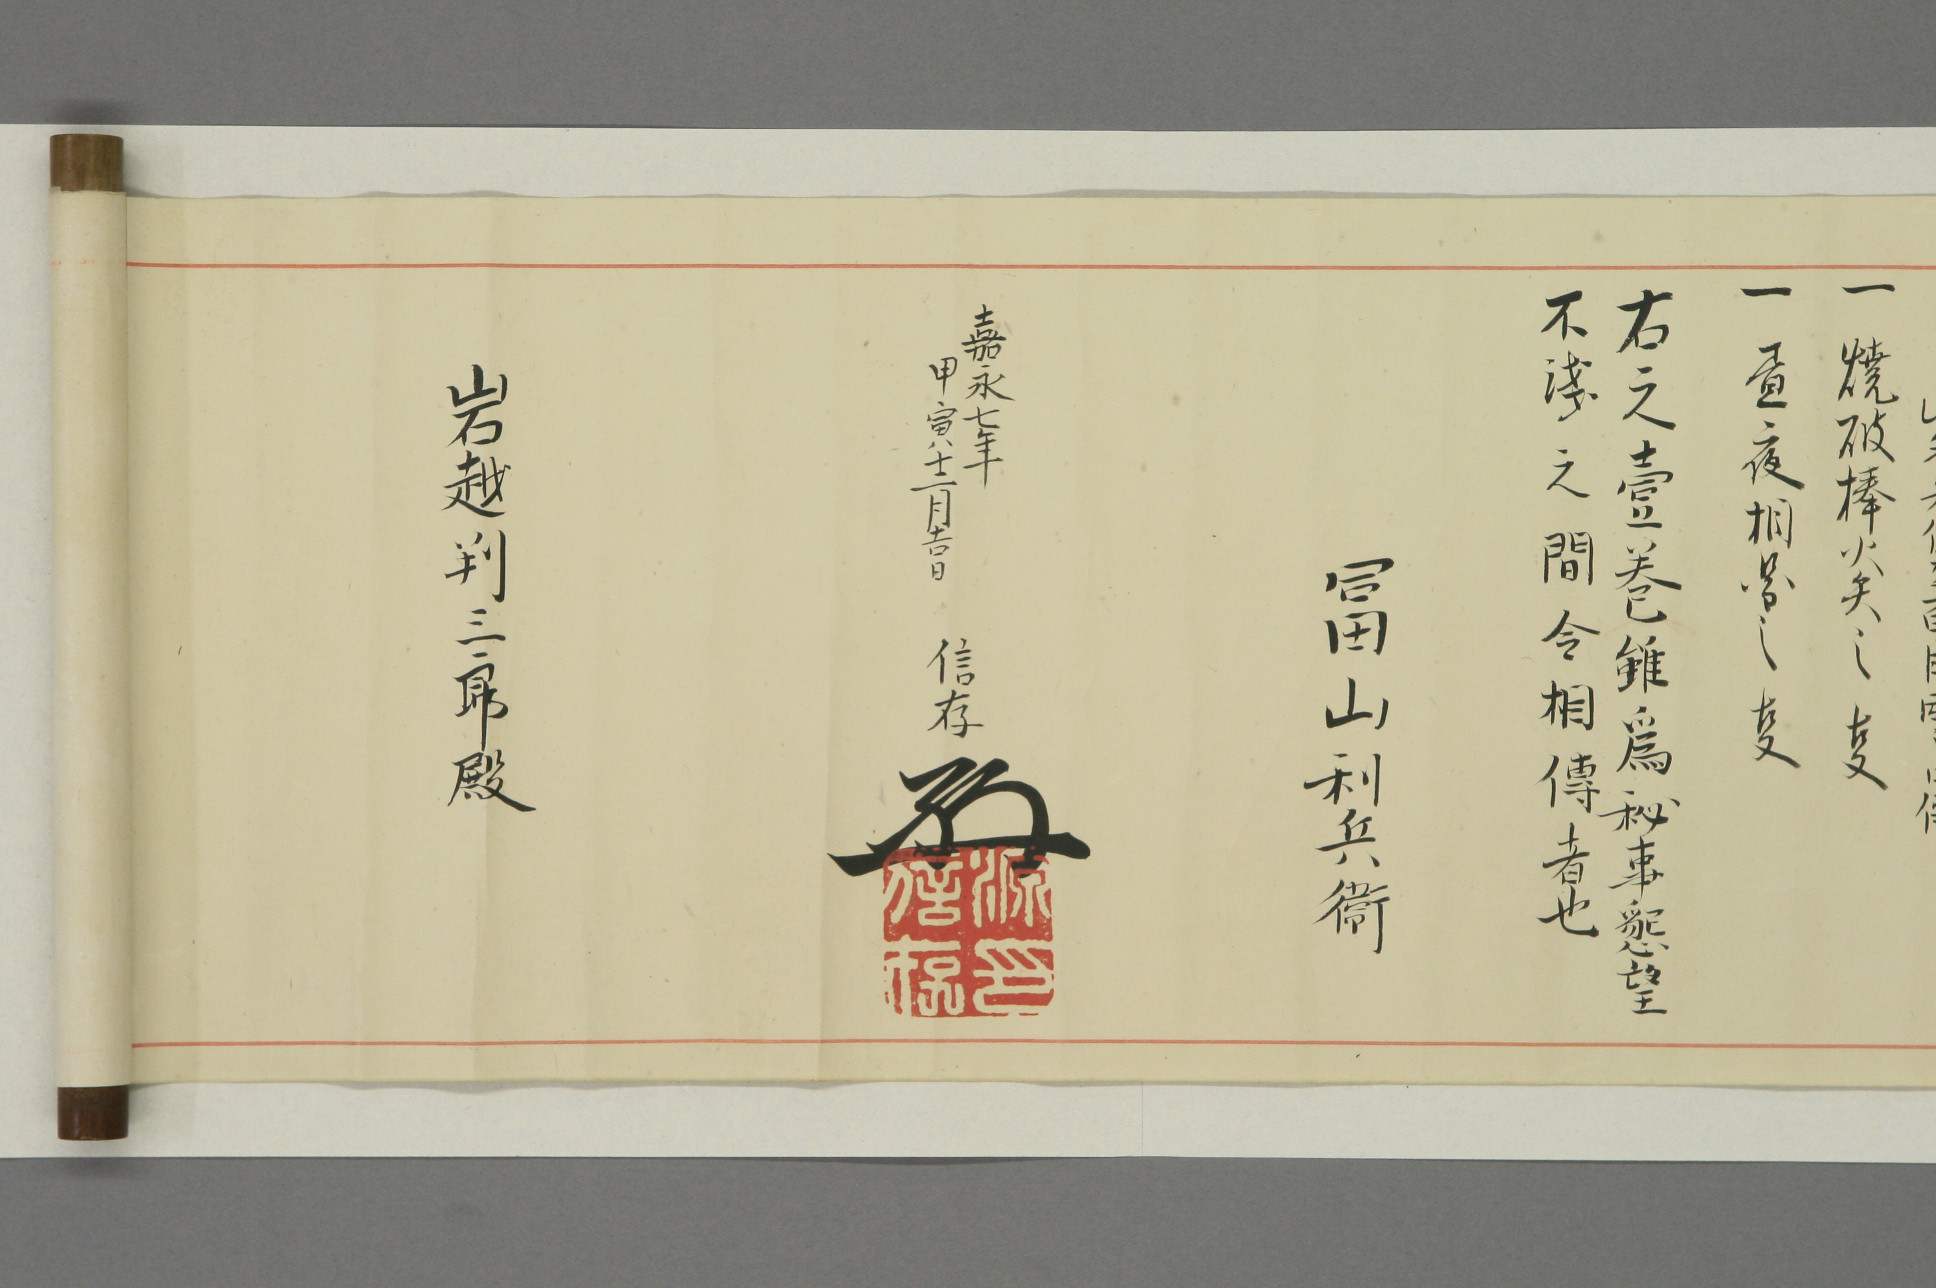 一 燒破棒火矢之叓
一 昼夜相啚之叓
右之壹巻雖爲秘事懇望
不淺之間令相傳者也
冨田山利兵衛
嘉永七年
甲寅十二月吉日
信存
源信存印
岩越判三郎殿